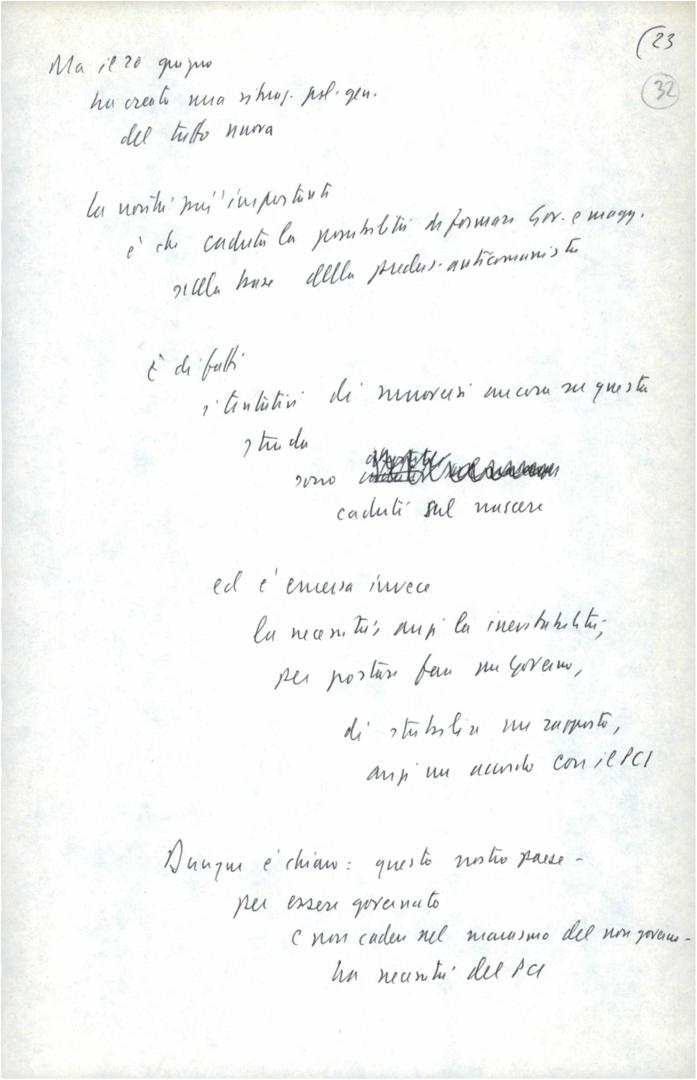 (23
32
Ma il 20 giugno
ha creato una situaz. pol. gen.
del tutto nuova
la novità più importante
è che caduta la possibilità di formare Gov. e magg.
sulla base della pregiud. anticomunista
E di fatti
i tentativi di muoversi ancora su questa
strada
sono
caduti sul nascere
ed è emersa invece
la necessità, anzi la inevitabilità,
per poter fare un Governo,
di stabilire un rapporto,
anzi un accordo con il PCI
Dunque è chiaro: questo nostro paese -
per essere governato
e non cadere nel marasmo del non governo -
ha necessità del PCI